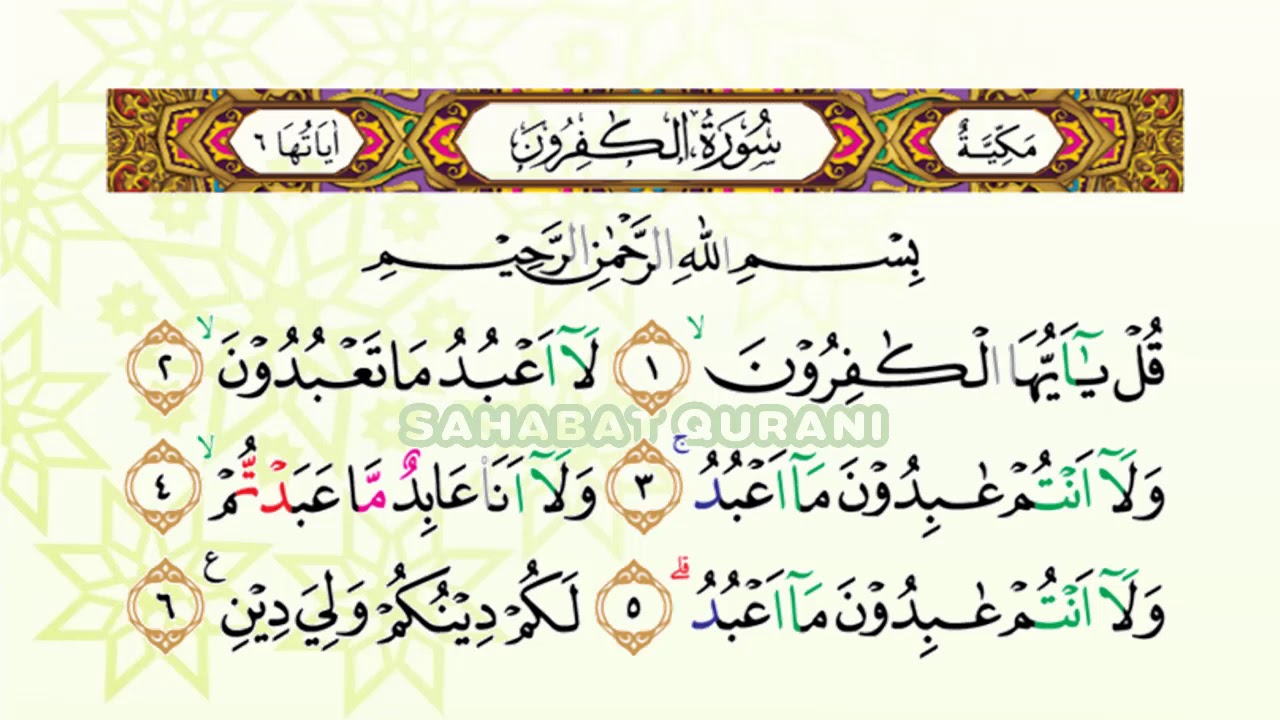 مَكِّيَّةٌ سُوْرَةُ الْكٰفِرُوْنَ اٰيَاتُهَا ٦
بِسْمِ اللّٰهِ الرَّحْمٰنِ الرَّحِيْمِ
قُلْ يٰٓاَيُّهَا الْكٰفِرُوْنَۙ ١ لَآ اَعْبُدُ مَا تَعْبُدُوْنَۙ ٢
SAHABAT QURANI
وَلَآ اَنْتُمْ عٰبِدُوْنَ مَآ اَعْبُدُۚ ٣ وَلَآ اَنَا۠ عَابِدٌ مَّا عَبَدْتُّمْۙ ٤
وَلَآ اَنْتُمْ عٰبِدُوْنَ مَآ اَعْبُدُۗ ٥ لَكُمْ دِيْنُكُمْ وَلِيَ دِيْنِ ع ٦